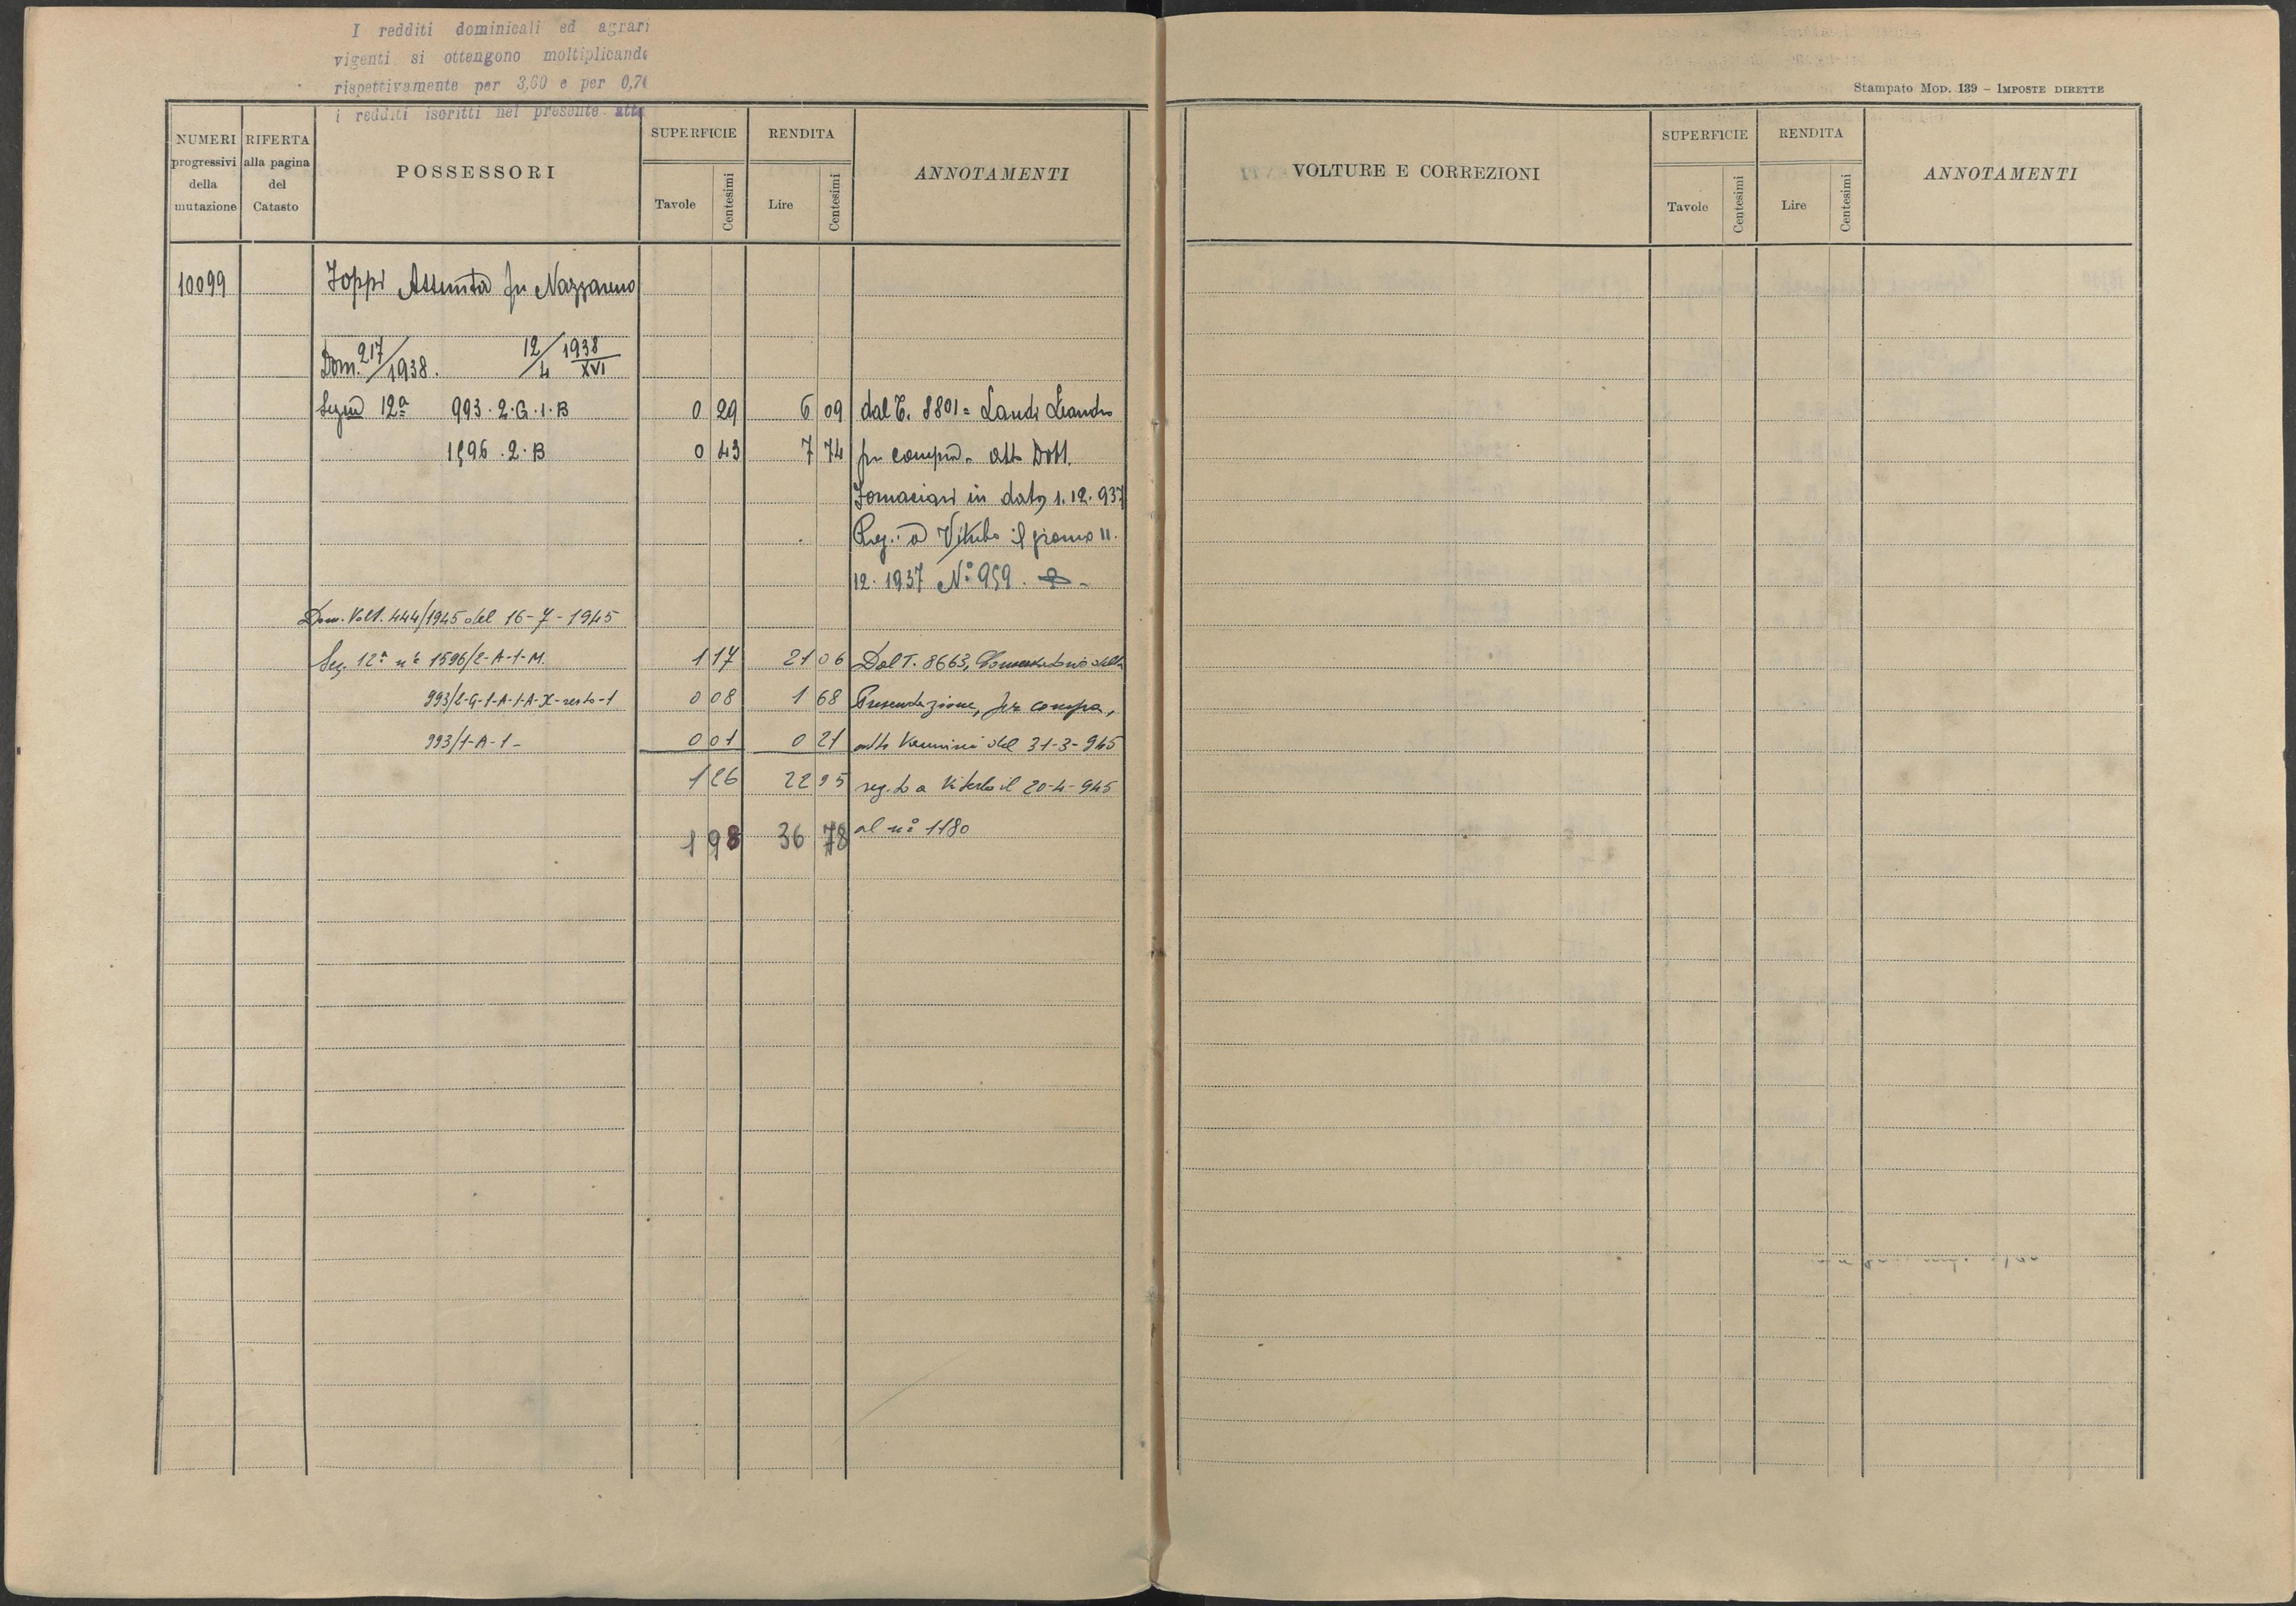 I redditi dominicali ed agrari
vigenti si ottengono moltiplicando
rispettivamente per 3,60 e per 0,70
i redditi iscritti nel presente atto
Stampato Mod. 139 - Imposte dirette
NUMERI progressivi della mutazione
RIFERTA alla pagina del Catasto
POSSESSORI
SUPERFICIE Tavole Centesimi
RENDITA Lire Centesimi
ANNOTAMENTI
VOLTURE E CORREZIONI
SUPERFICIE Tavole Centesimi
RENDITA Lire Centesimi
ANNOTAMENTI
10099 Ioppi Assunta fu Nazzareno
Dom. 217/1938. 12/4 1938 XVI
Sezne 12ª 993.2.G.1.B 0 29 6 09 dal T. 8801 = Landi Leandro
1596.2.B 0 43 7 74 per compra. atto Dott.
Fornaciari in data 1.12.937
Reg. a Viterbo il giorno 11.
12.1937 Nº 959.
Dom. Volt. 444/1945 del 16-7-1945
Sez. 12ª nº 1596/2-A-1-M. 1 17 21 06 Dal T. 8663, Conservatorio della
993/2-G-1-A-1-A-X-resto-1 0 08 1 68 Presentazione, per compra,
993/1-A-1- 0 01 0 21 atto del 31-3-945
1 26 22 95 reg.to a Viterbo il 20-4-945
1 98 36 78 al nº 1180